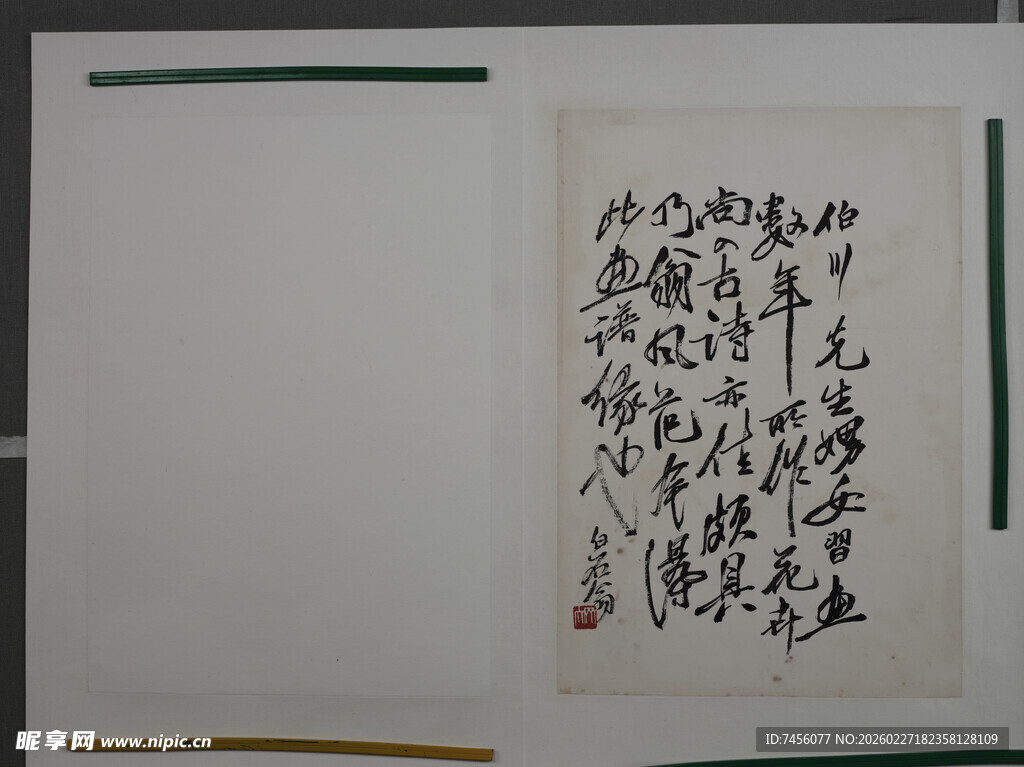 伯川先生嬲女習画
數年所作花卉
尚〻古詩亦佳頗具
乃翁風范存濤
此画譜緣也
白石翁
昵享网 www.nipic.cn
ID:7456077 NO:20260227182358128109